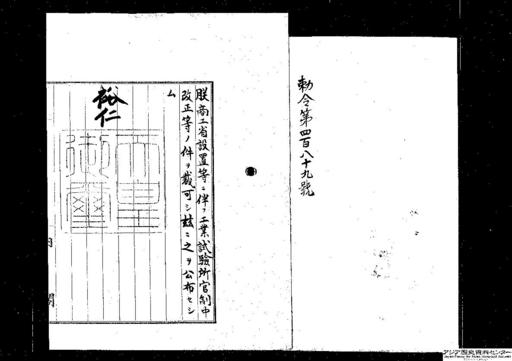 勅令第四百八十九號
朕商工省設置等ニ伴フ工業試驗所官制中
改正等ノ件ヲ裁可シ玆ニ之ヲ公布セシ
ム
裕仁
天皇
御璽
アジア歴史資料センター